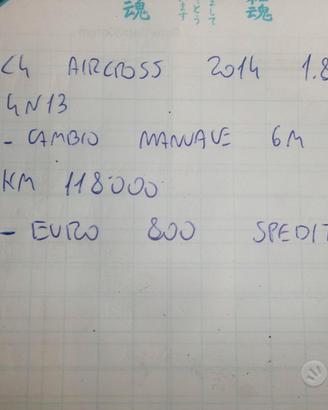 魂 ます とう して 魂
C4 AIRCROSS 2014 1.8
4N13
- CAMBIO MANUALE 6M
KM 118000
- EURO 800 SPEDIT